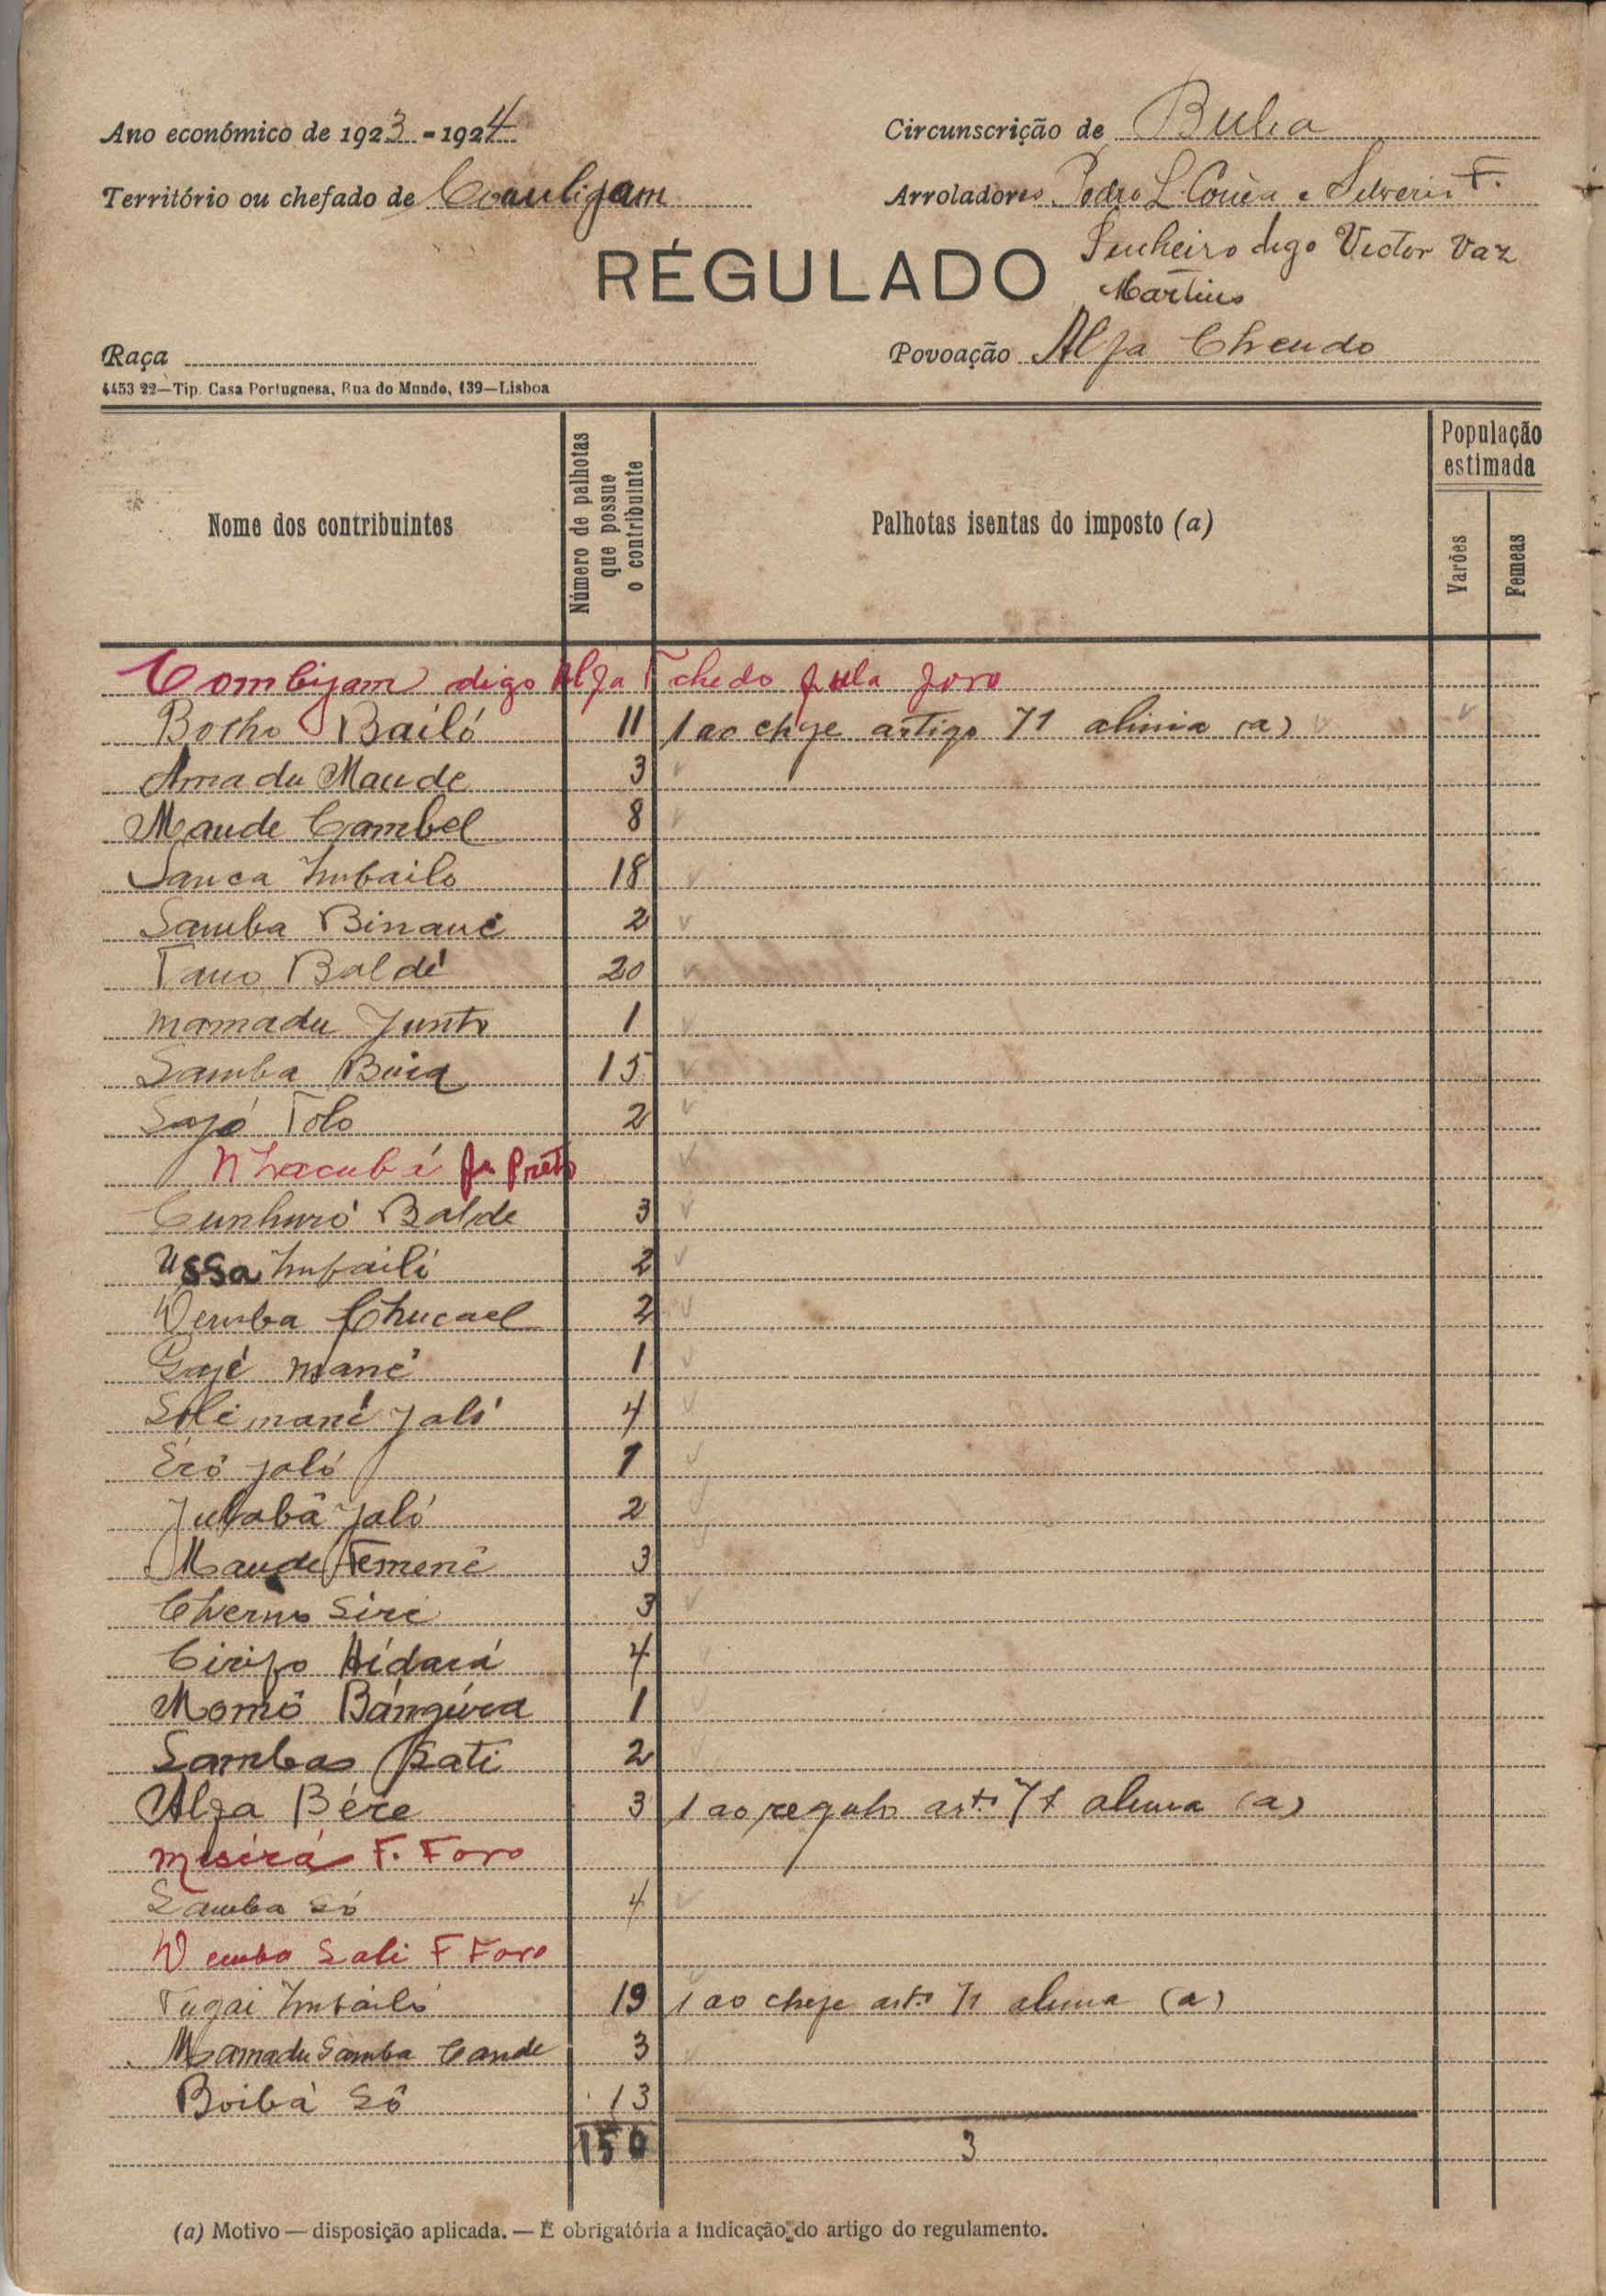 Ano económico de 1923 - 1924
Circunscrição de Buba
Território ou chefado de
Arroladores Pedro L. Corrêa e Silverio F.
Pinheiro digo Victor Vaz
Martins
RÉGULADO
Raça
Povoação Alfa Chendo
4453 22—Tip. Casa Portuguesa, Rua do Mundo, 139—Lisboa
Nome dos contribuintes
Número de palhotas que possue o contribuinte
Palhotas isentas do imposto (a)
População estimada
Varões
Femeas
Combijam digo Alfa Tchedo fula foro
Botho Bailó 11 1 ao chefe artigo 71 alinia (a)
Amadu Maude 3
Maude Cambel 8
Sanca Imbailo 18
Samba Binane 2
Tano Baldé 20
Mamadu Junto 1
Samba Buia 15
Sajó Tolo 2
Nhacubá fu preto
Cunhuró Balde 3
Ussa Imbaili 2
Wemba Chucael 2
Gajé Mané 1
Solimané Jaló 4
Éró Jaló 1
Julabâ Jaló 2
Maude Temené 3
Cherno Siri 3
Cirifo Hídará 4
Momô Bángúra 1
Sambas Sati 2
Alfa Bére 3 1 ao regulo artº 71 alinea (a)
Misírá F. Foro
Samba Só 4
Wemba Sali F Foro
Tugai Imbailó 19 1 ao chefe artº 71 alinea (a)
Mamadu Samba Cande 3
Boibá Sô 13
150 3
(a) Motivo — disposição aplicada. — É obrigatória a indicação do artigo do regulamento.